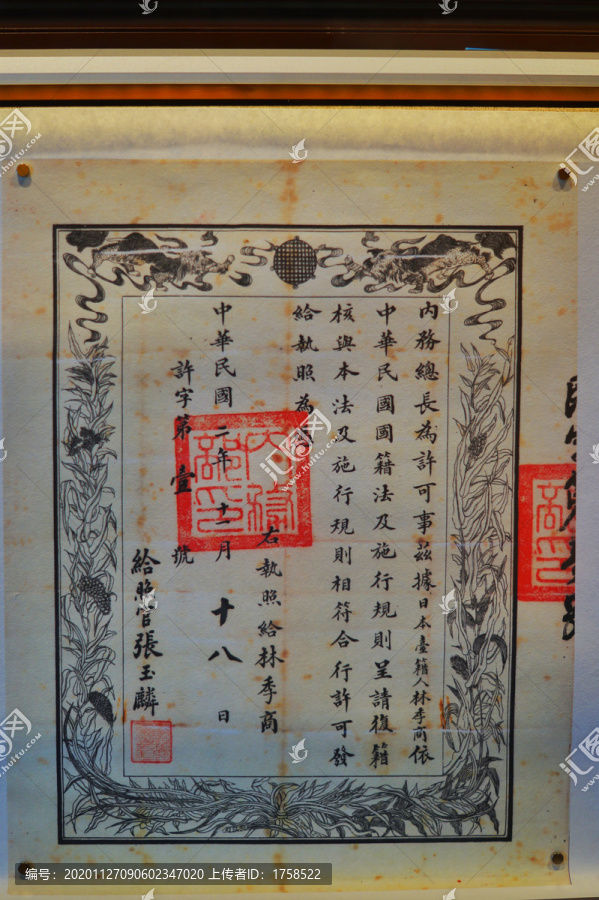 内務總長為許可事茲據日本臺籍人林季商依
中華民國國籍法及施行規則呈請復籍
核與本法及施行規則相符合行許可發
給執照為
右執照給林季商
中華民國二年十一月十八日
許字第壹號
給照官張玉麟
内務部印
编号：20201127090602347020 上传者ID：1758522
汇图网
www.huitu.com